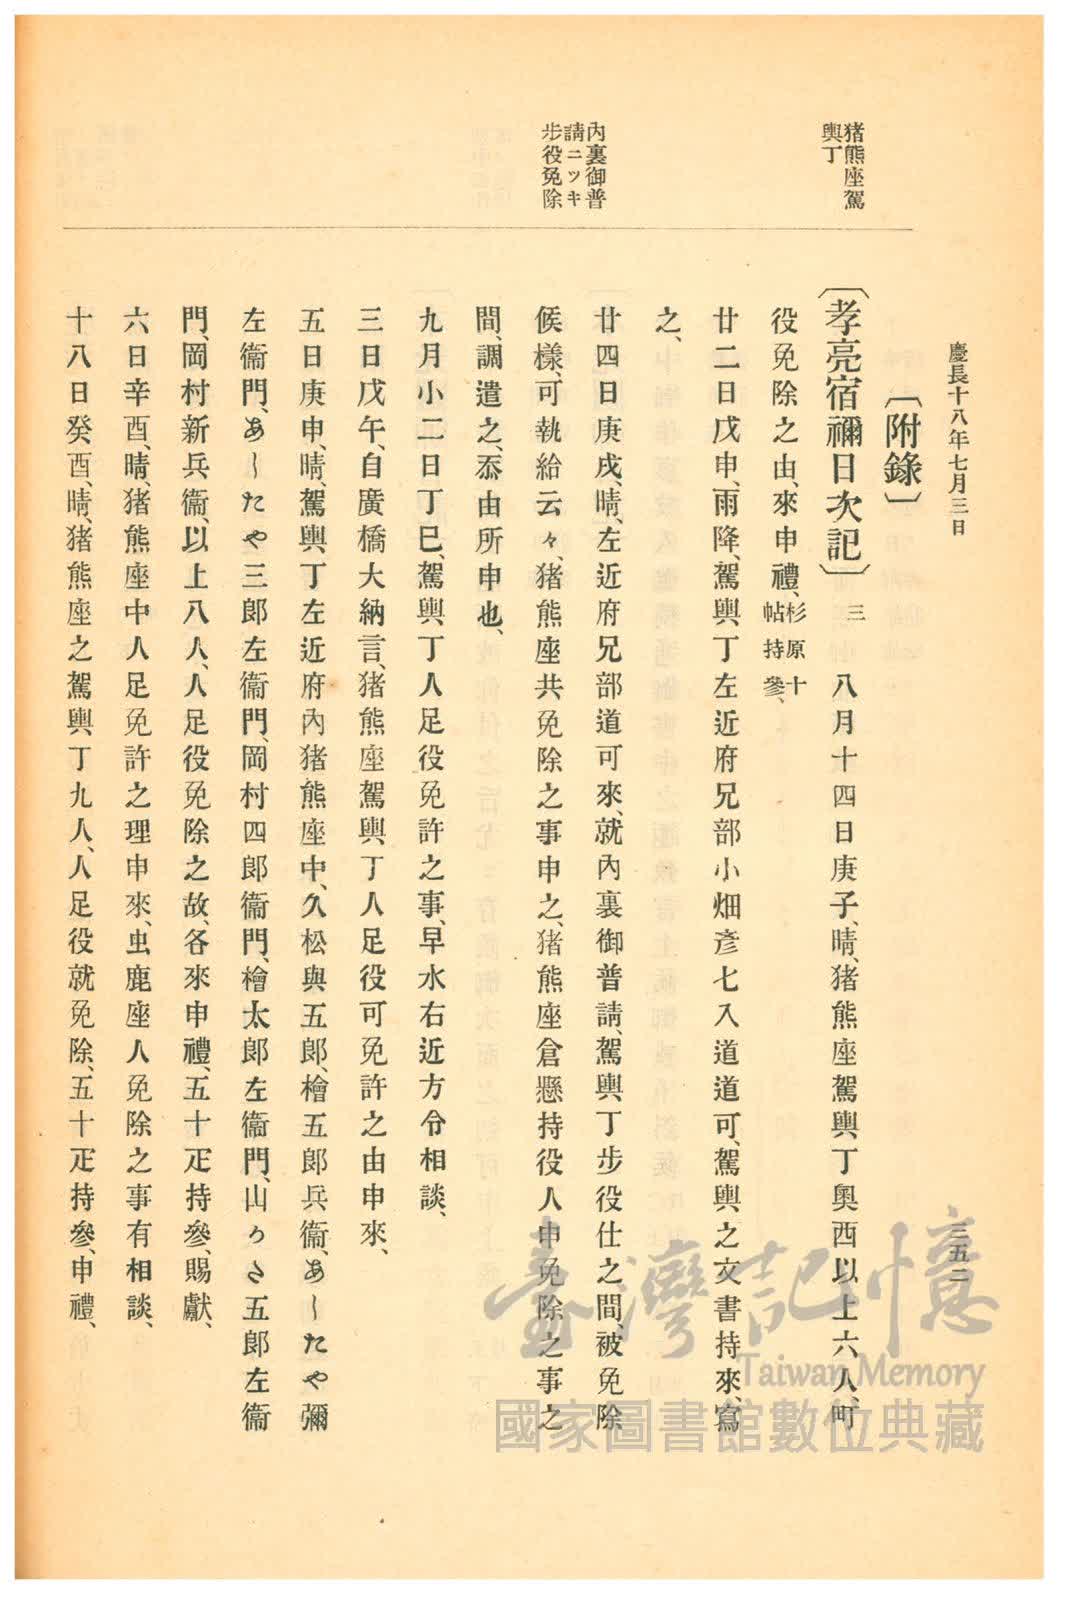 慶長十八年七月三日
三五二
猪熊座駕
輿丁
內裏御普
請ニツキ
步役免除
〔附錄〕
〔孝亮宿禰日次記〕三 八月十四日庚子、晴、猪熊座駕輿丁奧西以上六人、町
役免除之由、來申禮、杉原十帖持參、
廿二日戊申、雨降、駕輿丁左近府兄部小畑彥七入道道可、駕輿之文書持來、寫
之、
廿四日庚戌、晴、左近府兄部道可來、就內裏御普請、駕輿丁步役仕之間、被免除
候樣、可執給云々、猪熊座共免除之事申之、猪熊座倉懸持役人申免除之事之
間、調遣之、忝由所申也、
九月小二日丁巳、駕輿丁人足役免許之事、早水右近方令相談、
三日戊午、自廣橋大納言、猪熊座駕輿丁人足役可免許之由申來、
五日庚申、晴、駕輿丁左近府內猪熊座中、久松與五郞、檜五郞兵衞、あしたや彌
左衞門、あしたや三郞左衞門、岡村四郞衞門、檜太郞左衞門、山かさ五郞左衞
門、岡村新兵衞、以上八人、人足役免除之故、各來申禮、五十疋持參、賜獻、
六日辛酉、晴、猪熊座中人足免許之理申來、虫鹿座人免除之事有相談、
十八日癸酉、晴、猪熊座之駕輿丁九人、人足役就免除、五十疋持參、申禮、
臺灣記憶
Taiwan Memory
國家圖書館數位典藏